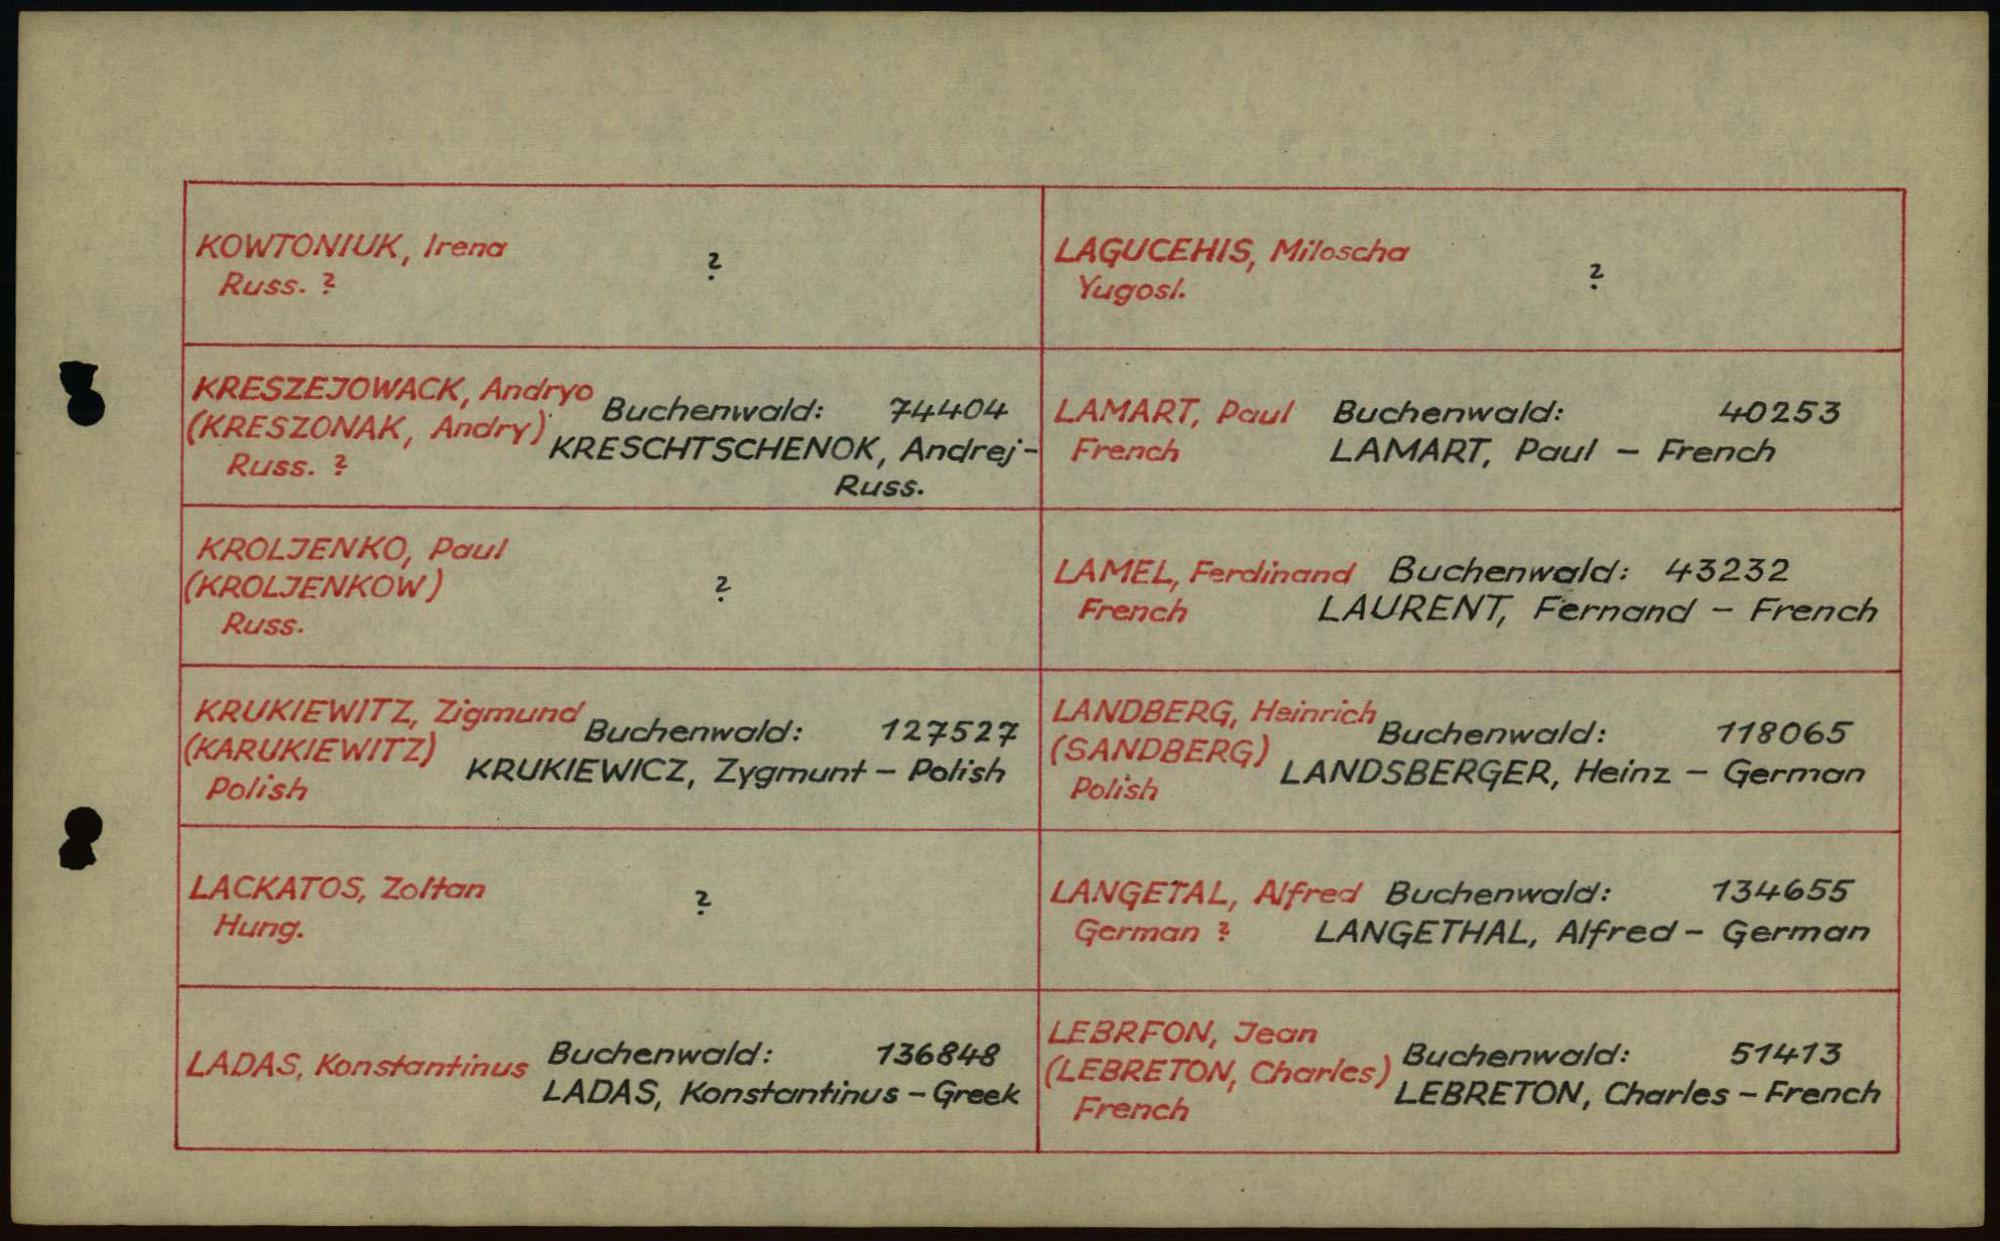 KOWTONIUK, Irena
Russ. ?
?
KRESZEJOWACK, Andryo
(KRESZONAK, Andry)
Russ. ?
Buchenwald: 74404
KRESCHTSCHENOK, Andrej-
Russ.
KROLJENKO, Paul
(KROLJENKOW)
Russ.
?
KRUKIEWITZ, Zigmund
(KARUKIEWITZ)
Polish
Buchenwald: 127527
KRUKIEWICZ, Zygmunt - Polish
LACKATOS, Zoltan
Hung.
?
LADAS, Konstantinus
Buchenwald: 136848
LADAS, Konstantinus - Greek
LAGUCEHIS, Miloscha
Yugosl.
?
LAMART, Paul
French
Buchenwald: 40253
LAMART, Paul - French
LAMEL, Ferdinand
French
Buchenwald: 43232
LAURENT, Fernand - French
LANDBERG, Heinrich
(SANDBERG)
Polish
Buchenwald: 118065
LANDSBERGER, Heinz - German
LANGETAL, Alfred
German ?
Buchenwald: 134655
LANGETHAL, Alfred - German
LEBRFON, Jean
(LEBRETON, Charles)
French
Buchenwald: 51413
LEBRETON, Charles - French